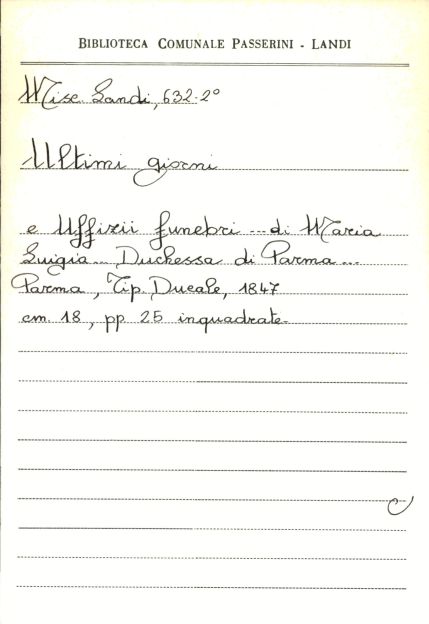 BIBLIOTECA COMUNALE PASSERINI - LANDI
Misc. Landi, 632-2°
Ultimi giorni
e Uffizii funebri ... di Maria
Luigia ... Duchessa di Parma ...
Parma, Tip. Ducale, 1847
cm. 18, pp. 25 inquadrate-
C